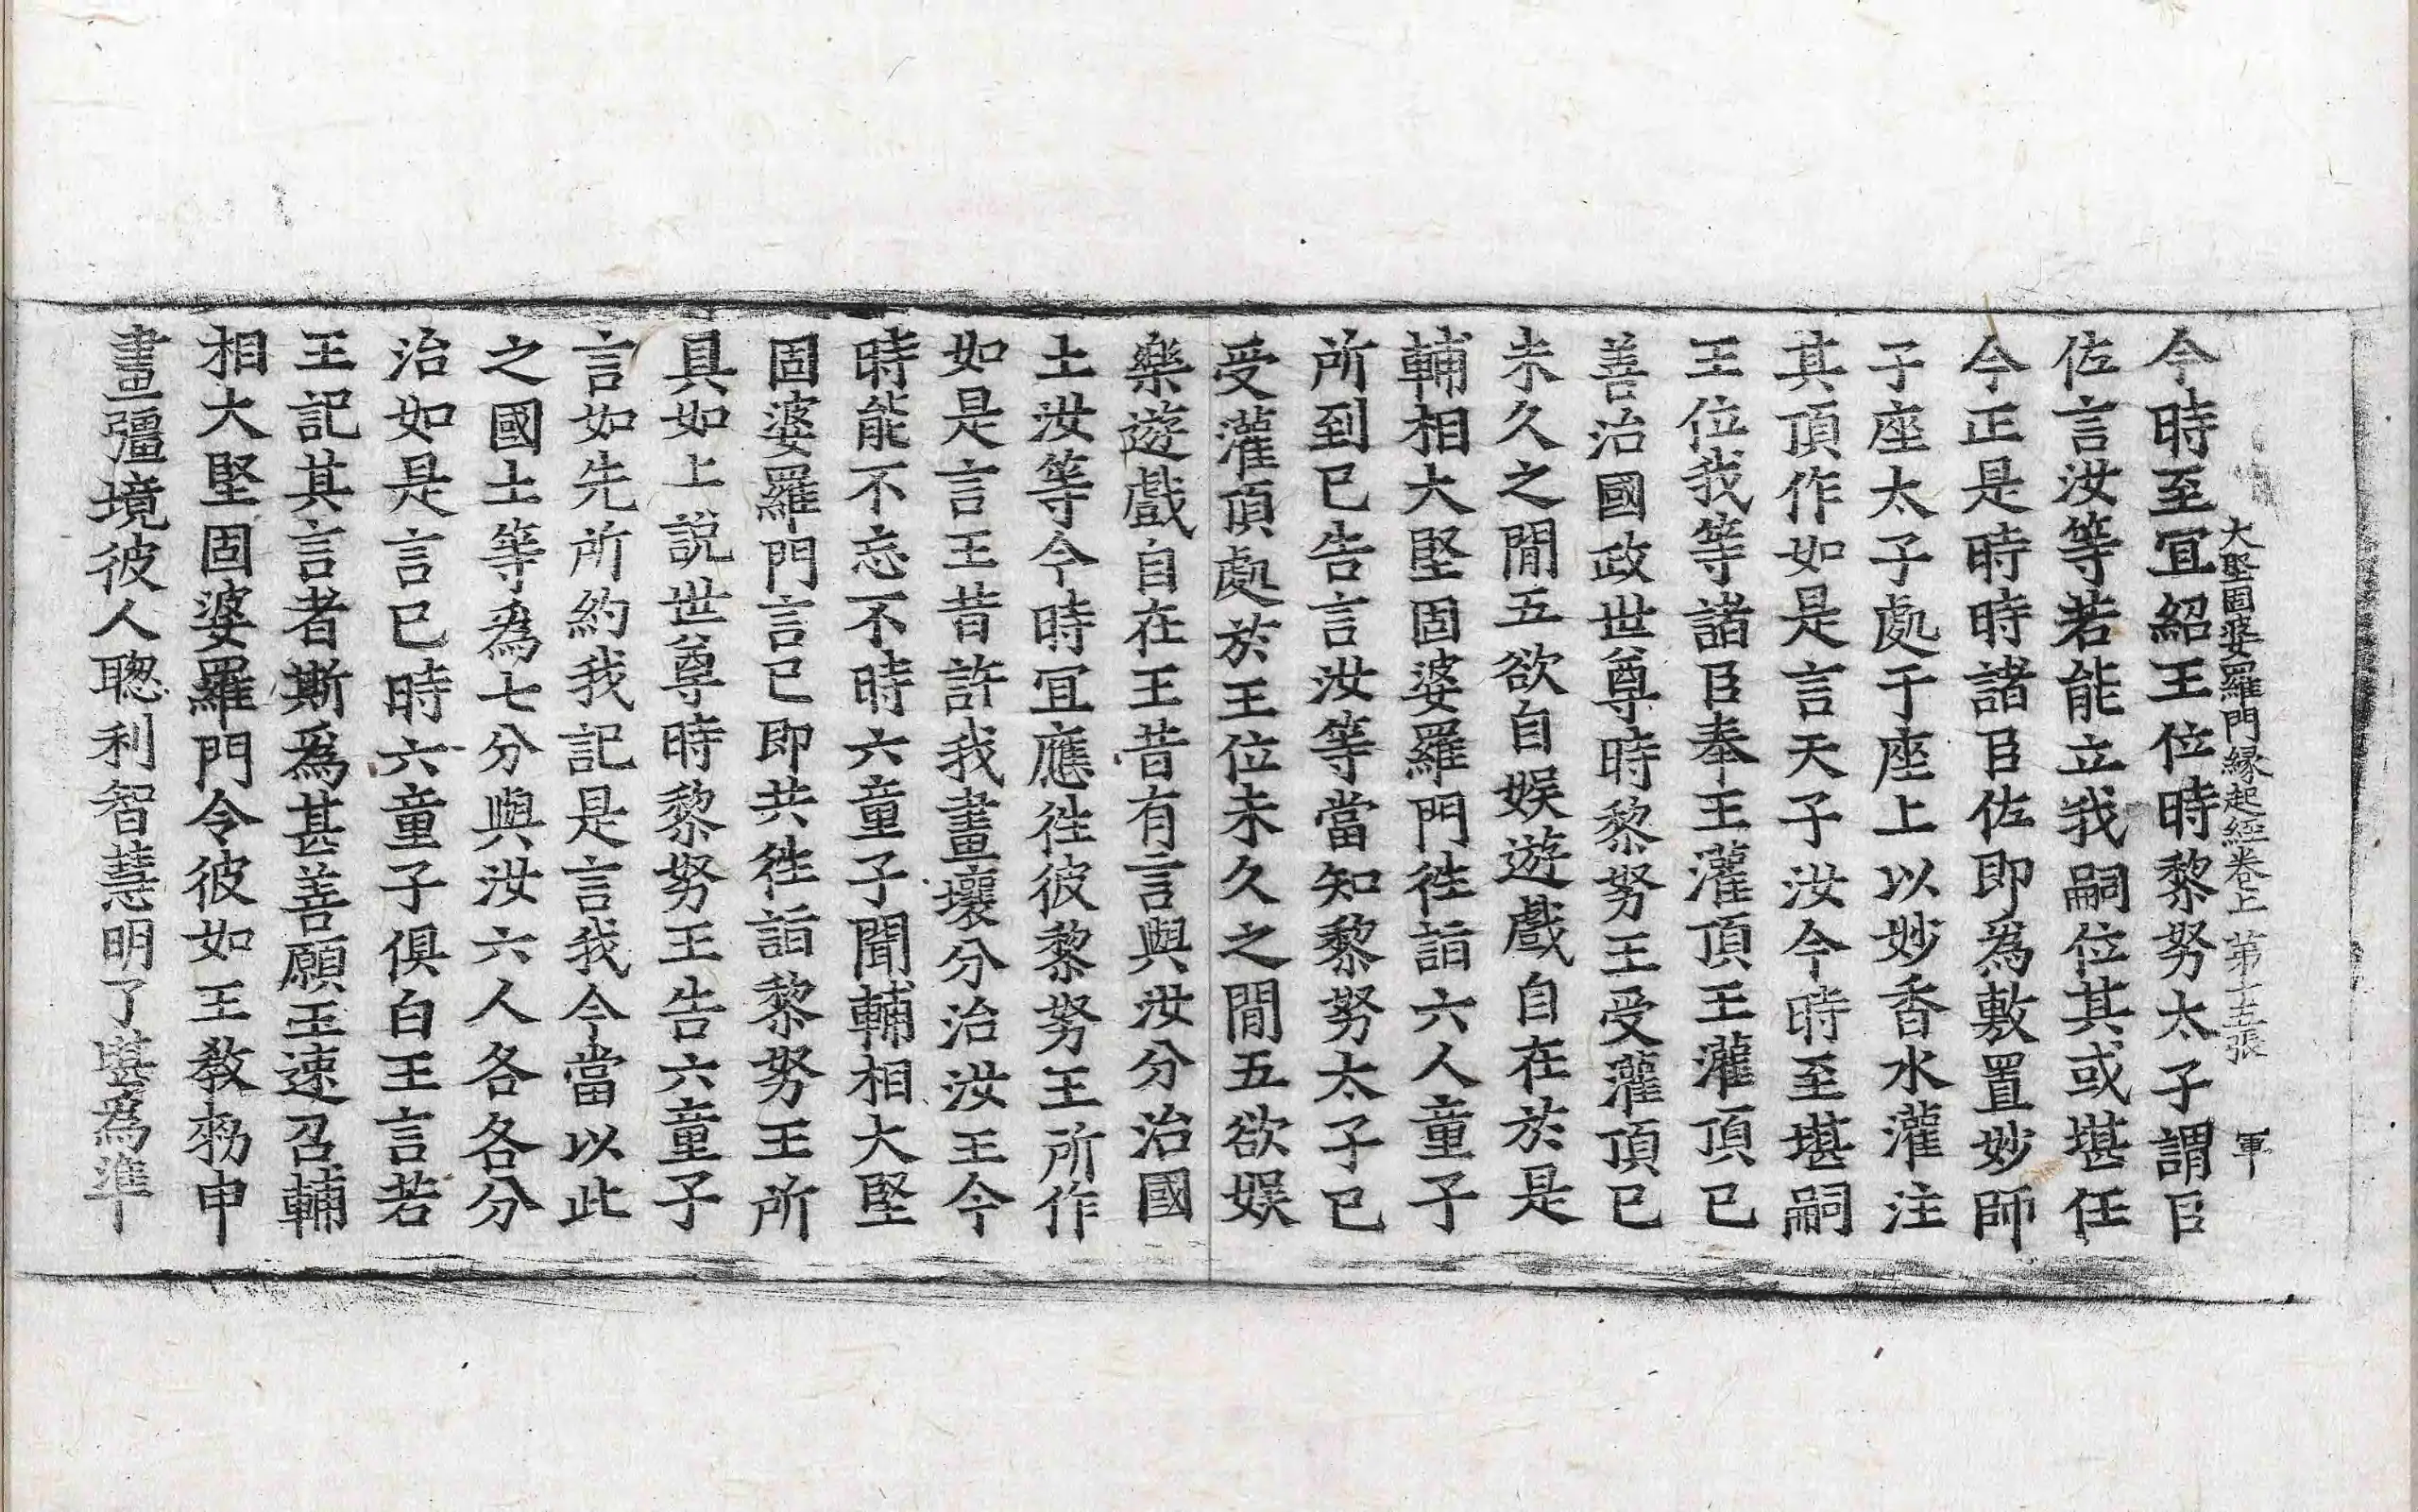 大堅固婆羅門縁起經卷上 第十五張 軍
今時至宜紹王位時黎努太子謂臣
佐言汝等若能立我嗣位其或堪任
今正是時時諸臣佐即為敷置妙師
子座太子處于座上以妙香水灌注
其頂作如是言天子汝今時至堪嗣
王位我等諸臣奉王灌頂王灌頂已
善治國政世尊時黎努王受灌頂已
未久之閒五欲自娛遊戲自在於是
輔相大堅固婆羅門徃詣六人童子
所到已告言汝等當知黎努太子已
受灌頂處於王位未久之閒五欲娛
樂遊戲自在王昔有言與汝分治國
土汝等今時宜應徃彼黎努王所作
如是言王昔許我畫壤分治汝王今
時能不忘不時六童子聞輔相大堅
固婆羅門言已即共徃詣黎努王所
具如上說世尊時黎努王告六童子
言如先所約我記是言我今當以此
之國土等為七分與汝六人各各分
治如是言已時六童子俱白王言若
王記其言者斯為甚善願王速召輔
相大堅固婆羅門令彼如王敎勑申
畫彊境彼人聦利智慧明了堪為準